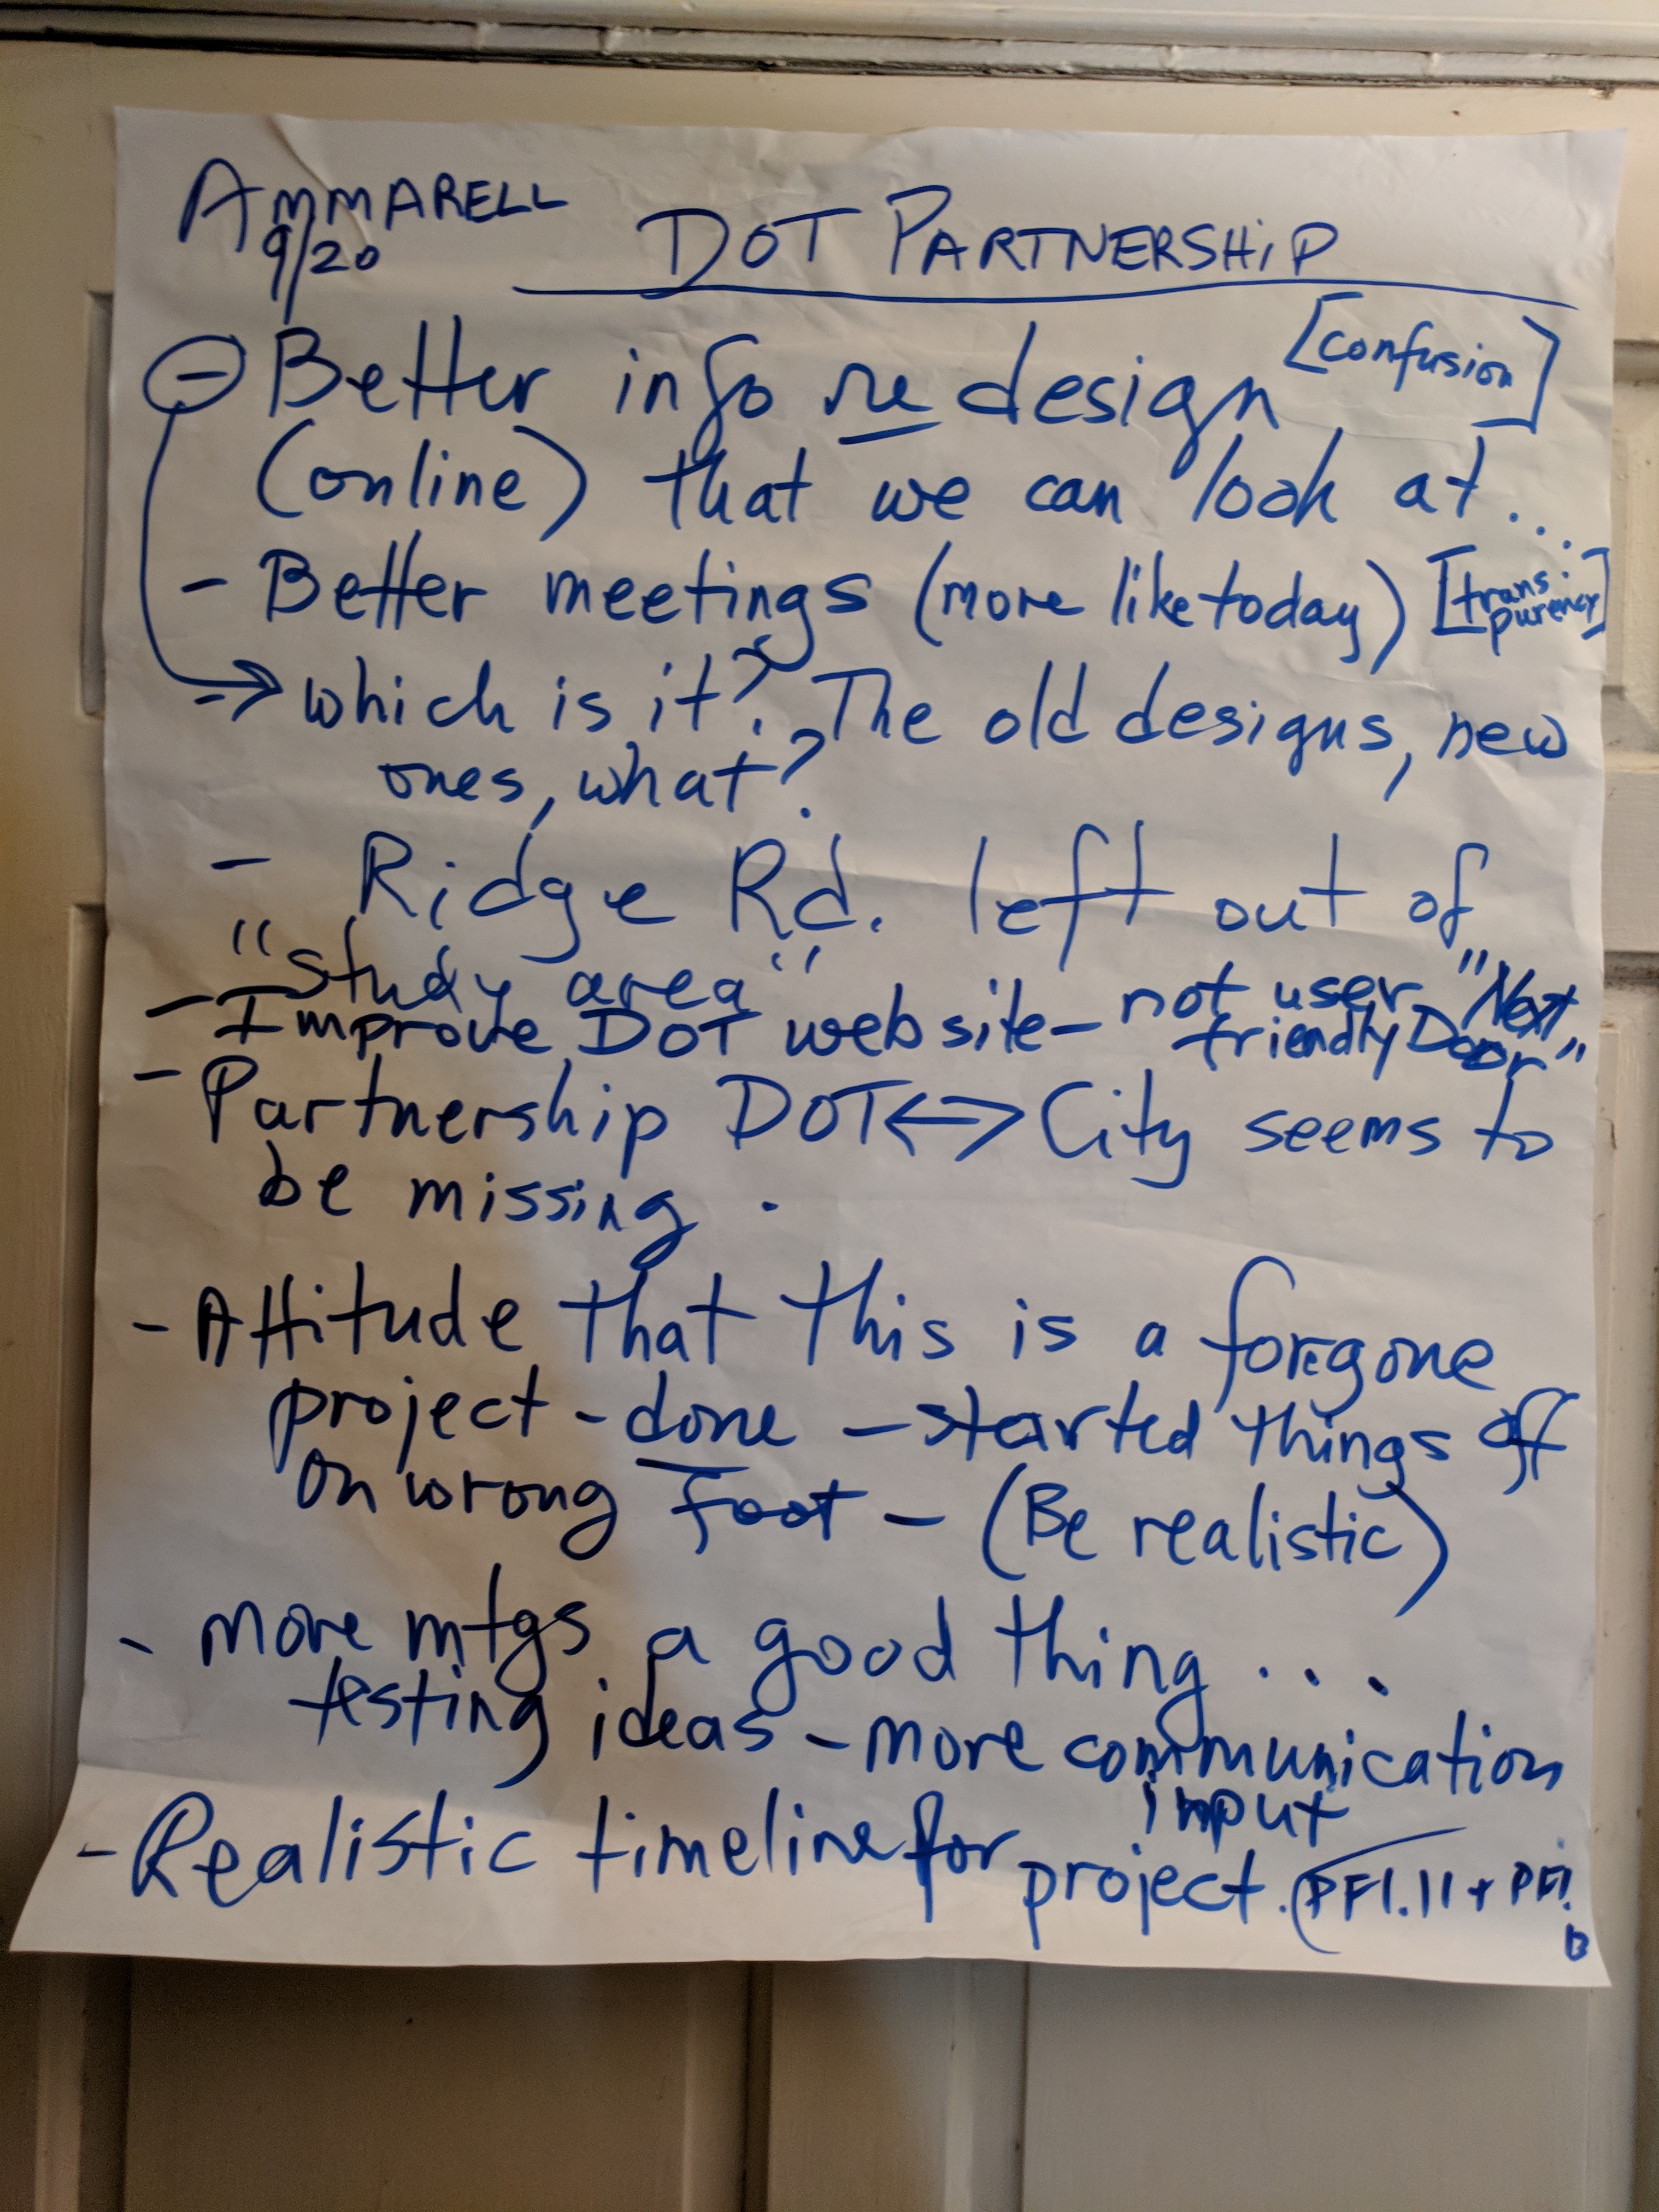 AMMARELL
9/20
DOT PARTNERSHIP
- Better info re design [confusion]
(online) that we can look at...
- Better meetings (more like today) [trans
purency]
-> which is it? The old designs, new
ones, what?
- Ridge Rd. left out of
"study area"
- Improve DOT website - not user
friendly "Next
Door"
- Partnership DOT <-> City seems to
be missing.
- Attitude that this is a foregone
project - done - started things off
on wrong foot - (Be realistic)
- more mtgs a good thing...
testing ideas - more communication
input
- Realistic timeline for project. (PF1.11 +